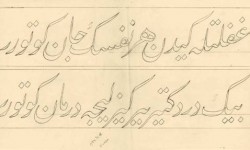 غفلتله کیدن هر نفسک جان کوتورر
بیک درد کتیرر کیزلیجه درمان کوتورر